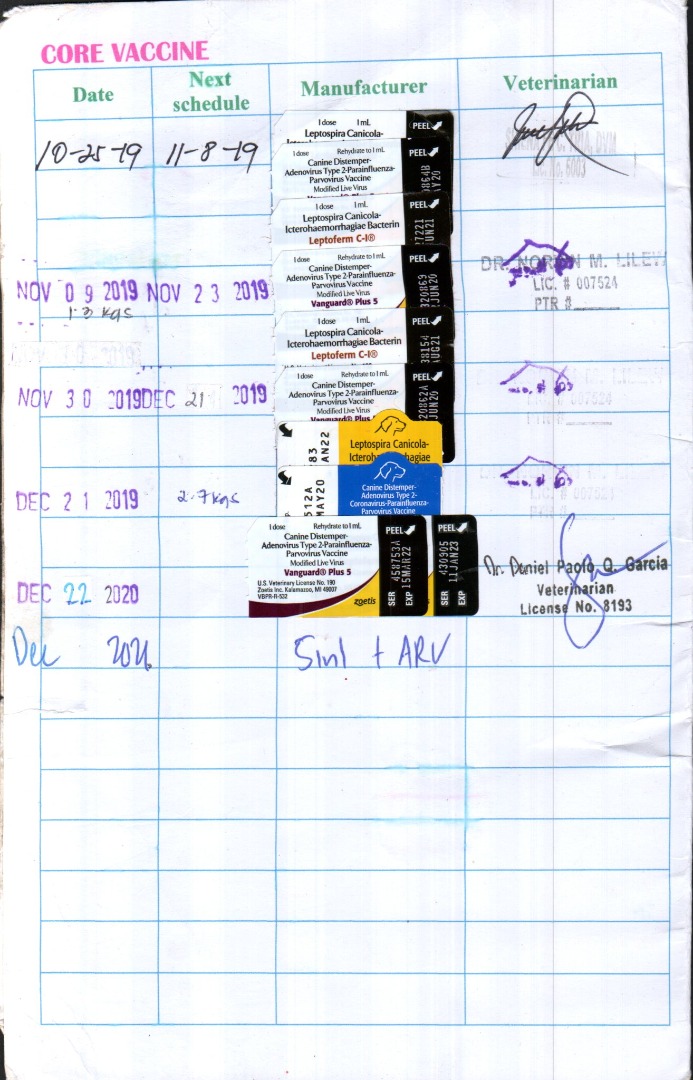 CORE VACCINE
Date
Next schedule
Manufacturer
Veterinarian
10-25-19
11-8-19
1 dose 1 mL
Leptospira Canicola-
PEEL
1 dose Rehydrate to 1 mL
Canine Distemper-
Adenovirus Type 2-Parainfluenza-
Parvovirus Vaccine
Modified Live Virus
PEEL
1 dose 1 mL
Leptospira Canicola-
Icterohaemorrhagiae Bacterin
Leptoferm C-I®
PEEL
7221
UN21
NOV 09 2019
NOV 23 2019
1.3 kgs
1 dose Rehydrate to 1 mL
Canine Distemper-
Adenovirus Type 2-Parainfluenza-
Parvovirus Vaccine
Modified Live Virus
Vanguard® Plus 5
PEEL
320869
JUN20
M. LILEW
LIC. # 007524
PTR #
1 dose 1 mL
Leptospira Canicola-
Icterohaemorrhagiae Bacterin
Leptoferm C-I®
PEEL
38154
AUG21
NOV 30 2019
DEC 21 2019
1 dose Rehydrate to 1 mL
Canine Distemper-
Adenovirus Type 2-Parainfluenza-
Parvovirus Vaccine
Modified Live Virus
Vanguard® Plus
PEEL
20862A
JUN20
83
AN22
Leptospira Canicola-
DEC 21 2019
2.7 kgs
512A
MAY20
Canine Distemper-
Adenovirus Type 2-
Coronavirus-Parainfluenza-
Parvovirus Vaccine
DEC 22 2020
1 dose Rehydrate to 1 mL
Canine Distemper-
Adenovirus Type 2-Parainfluenza-
Parvovirus Vaccine
Modified Live Virus
Vanguard® Plus 5
U.S. Veterinary License No. 190
Zoetis Inc. Kalamazoo, MI 49007
VBPR-R-532
zoetis
PEEL
SER 458753A
EXP 15MAR22
PEEL
SER 430905
EXP 11JAN23
Dr. Daniel Paolo Q. Garcia
Veterinarian
License No. 8193
Dec 2021
5in1 + ARV